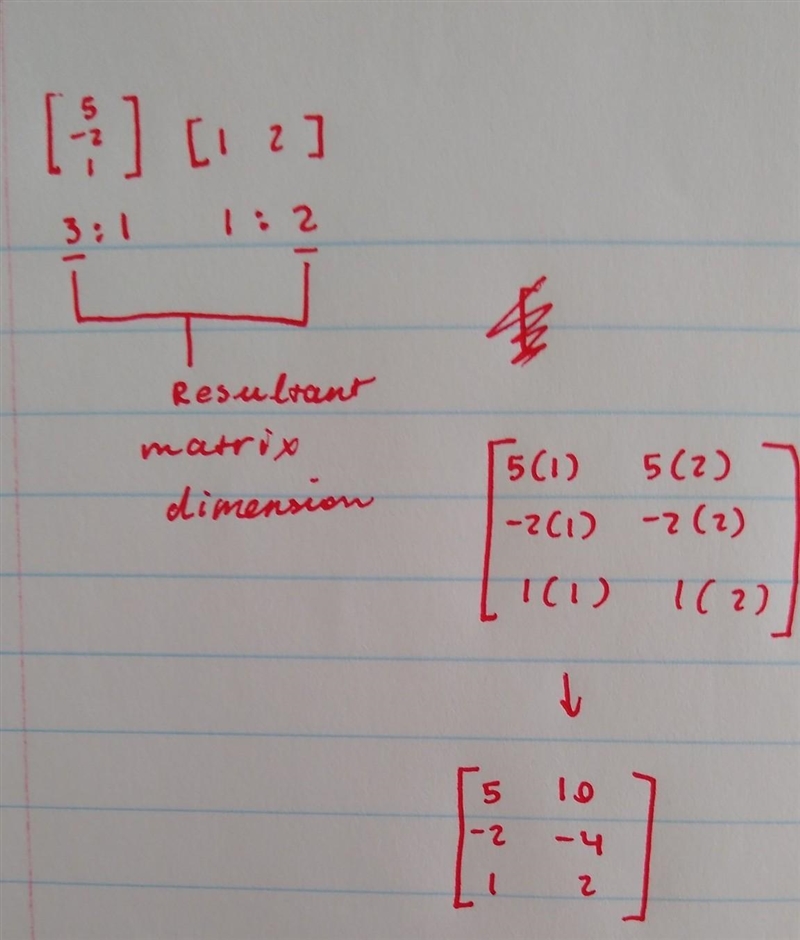 [ 5 ] [ 1 2 ]
-2
1
3:1 1:2
Resultant
matrix
dimension
5(1) 5(2)
-2(1) -2(2)
1(1) 1(2)
↓
5 10
-2 -4
1 2